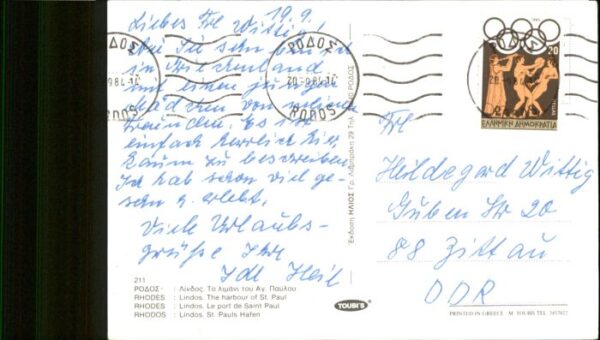 19.9.
Liebes Frl Wittig!
in Griechenland
mit einem jungen
Mädchen von meinen
Freunden. Es ist
einfach herrlich hier,
kaum zu beschreiben.
Ich hab schon viel ge-
sehn u. erlebt.
Viele Urlaubs-
grüße Ihr
Heil
211
ΡΟΔΟΣ : Λίνδος. Το λιμάνι του Αγ. Παύλου
RHODES : Lindos. The harbour of St. Paul
RHODES : Lindos. Le port de Saint Paul
RHODOS : Lindos. St. Pauls Hafen
Έκδοση ΗΛΙΟΣ Γρ. Λαμπράκη 29 Τηλ ΡΟΔΟΣ
TOUBI'S
ΡΟΔΟΣ
RODOS
ΡΟΔΟΣ
20 9.84.14
RODOS
20
ΕΛΛΗΝΙΚΗ ΔΗΜΟΚΡΑΤΙΑ
HELLAS
Frl
Hildegard Wittig
Guben Str 20
88 Zittau
DDR
PRINTED IN GREECE M. TOUBIS TEL.